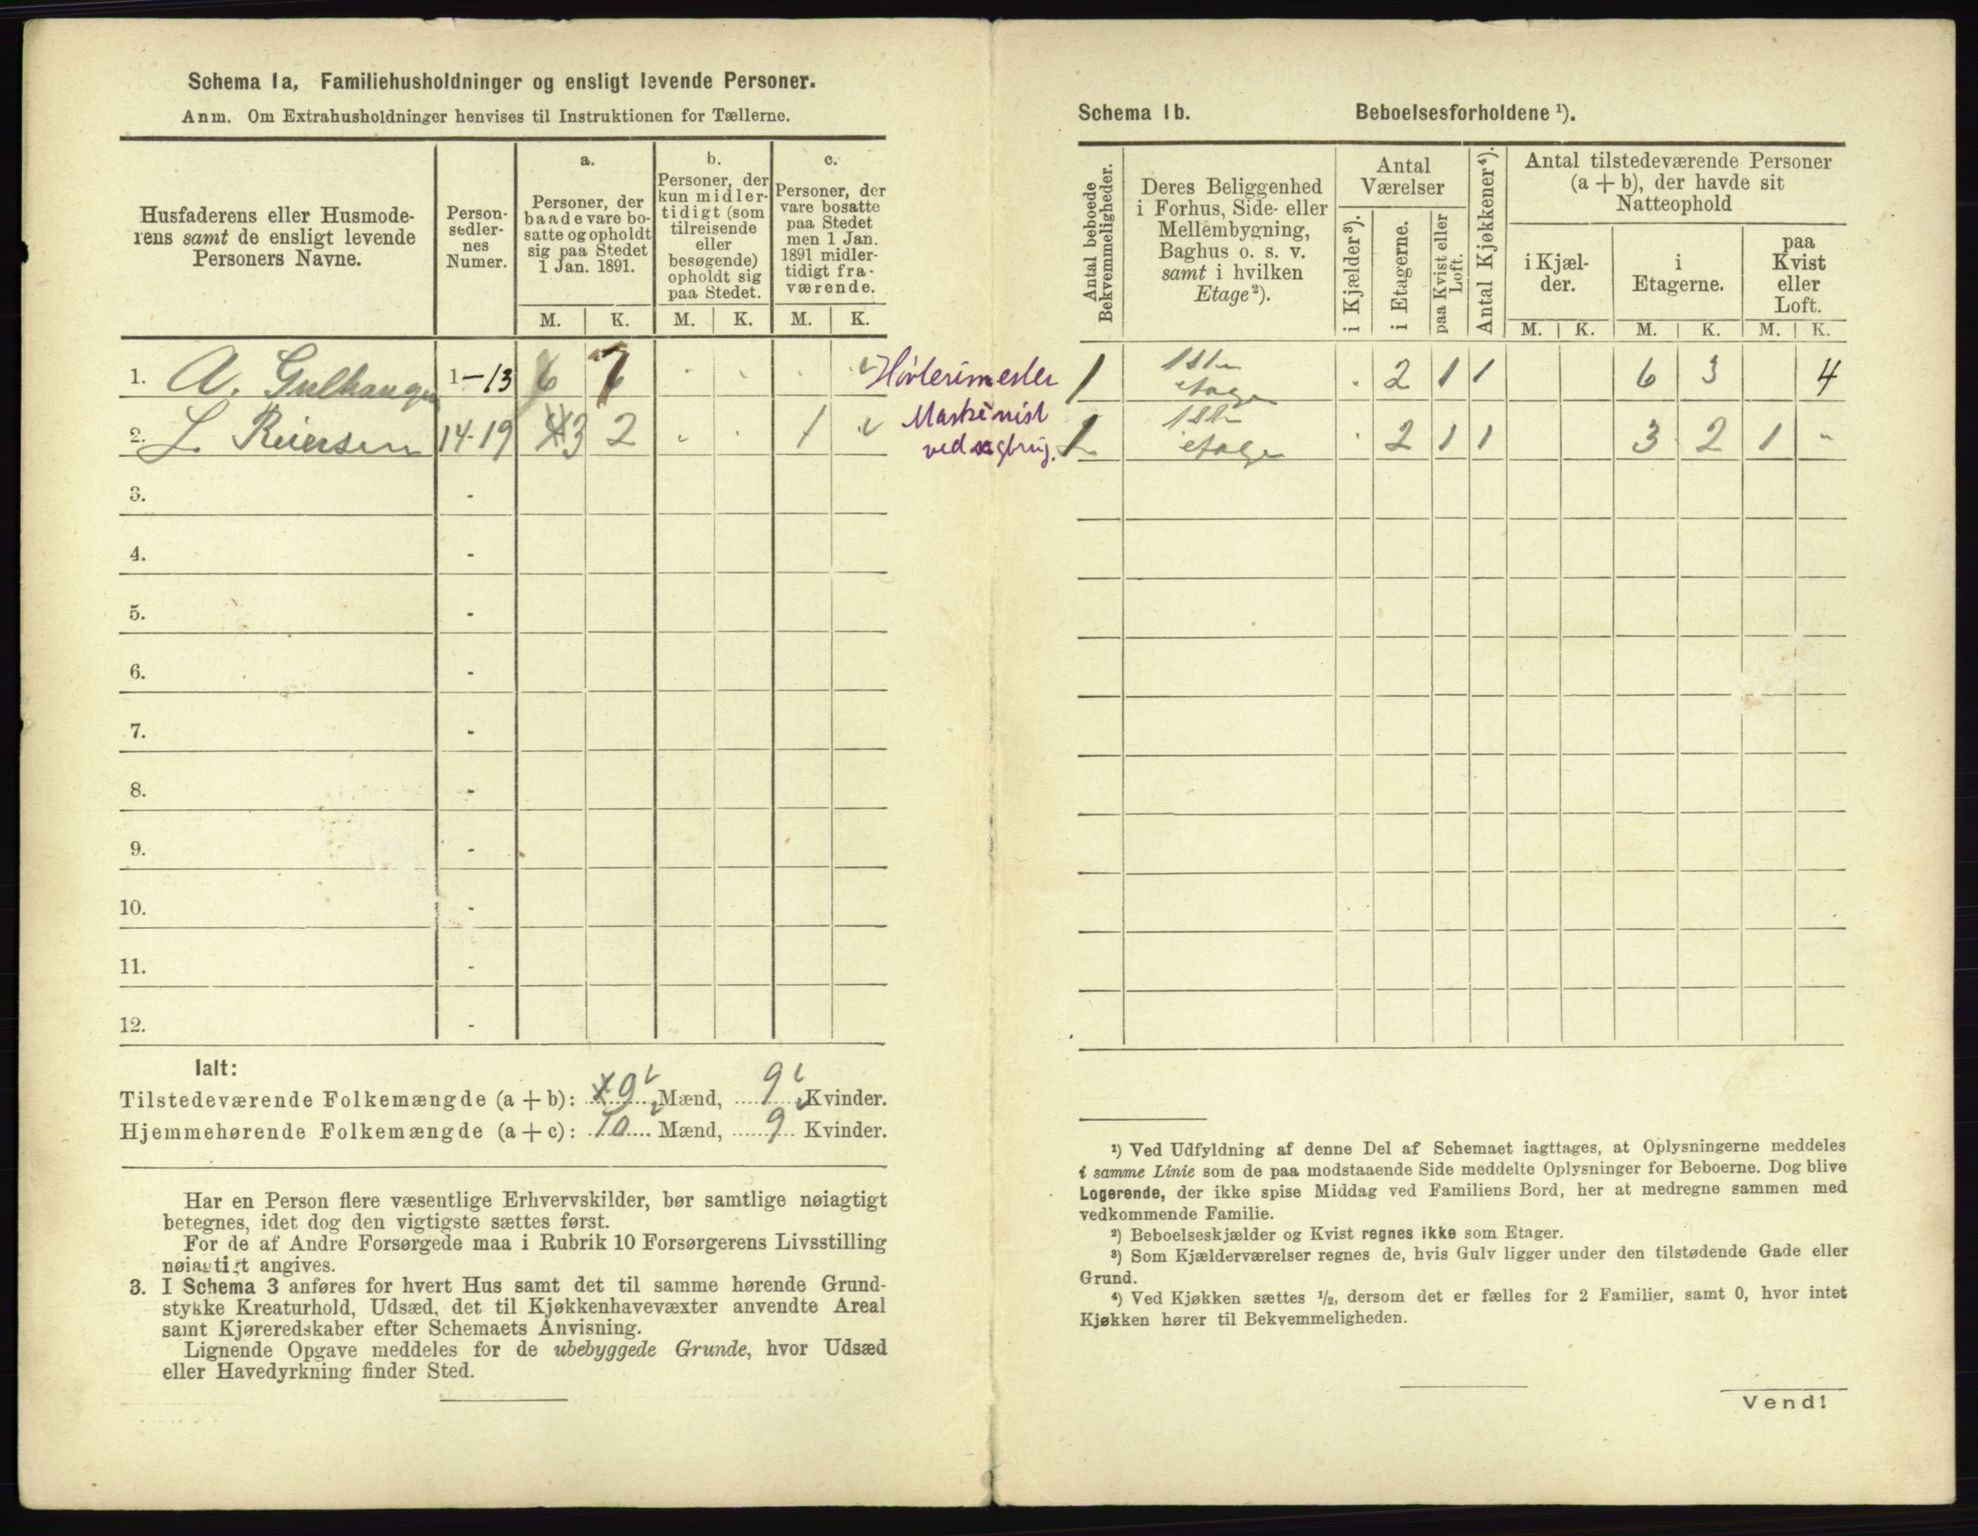 Schema 1a, Familiehusholdninger og ensligt levende Personer.
Anm. Om Extrahusholdninger henvises til Instruktionen for Tællerne.
Husfaderens eller Husmode-
rens samt de ensligt levende
Personers Navne.
Person-
sedler-
nes
Numer.
a.
Personer, der
baade vare bo-
satte og opholdt
sig paa Stedet
1 Jan. 1891.
b.
Personer, der
kun midler-
tidigt (som
tilreisende
eller
besøgende)
opholdt sig
paa Stedet.
c.
Personer, der
vare bosatte
paa Stedet
men 1 Jan.
1891 midler-
tidigt fra-
værende.
M. K. M. K. M. K.
1. A. Gulhaugen 1-13 6 7 Høvlerimester
2. L. Reiersen 14-19 3 2 1 Maskinist
ved
3. -
4. -
5. -
6. -
7. -
8. -
9. -
10. -
11. -
12. -
Ialt:
Tilstedeværende Folkemængde (a + b): 9 Mænd, 9 Kvinder.
Hjemmehørende Folkemængde (a + c): 10 Mænd, 9 Kvinder.
Har en Person flere væsentlige Erhvervskilder, bør samtlige nøiagtigt
betegnes, idet dog den vigtigste sættes først.
For de af Andre Forsørgede maa i Rubrik 10 Forsørgerens Livsstilling
nøiagtigt angives.
3. I Schema 3 anføres for hvert Hus samt det til samme hørende Grund-
stykke Kreaturhold, Udsæd, det til Kjøkkenhavevæxter anvendte Areal
samt Kjøreredskaber efter Schemaets Anvisning.
Lignende Opgave meddeles for de ubebyggede Grunde, hvor Udsæd
eller Havedyrkning finder Sted.
Schema 1b. Beboelsesforholdene ¹).
Antal beboede
Bekvemmeligheder.
Deres Beliggenhed
i Forhus, Side- eller
Mellembygning,
Baghus o. s. v.
samt i hvilken
Etage ²).
Antal
Værelser
i Kjælder ³).
i Etagerne.
paa Kvist eller
Loft.
Antal Kjøkkener ⁴).
Antal tilstedeværende Personer
(a + b), der havde sit
Natteophold
i Kjæl-
der.
i
Etagerne.
paa
Kvist
eller
Loft.
M. K. M. K. M. K.
1 1ste
etage 2 1 1 6 3 4
1 1ste
etage 2 1 1 3 2 1
¹) Ved Udfyldning af denne Del af Schemaet iagttages, at Oplysningerne meddeles
i samme Linie som de paa modstaaende Side meddelte Oplysninger for Beboerne. Dog blive
Logerende, der ikke spise Middag ved Familiens Bord, her at medregne sammen med
vedkommende Familie.
²) Beboelseskjælder og Kvist regnes ikke som Etager.
³) Som Kjælderværelser regnes de, hvis Gulv ligger under den tilstødende Gade eller
Grund.
⁴) Ved Kjøkken sættes ½, dersom det er fælles for 2 Familier, samt 0, hvor intet
Kjøkken hører til Bekvemmeligheden.
Vend!